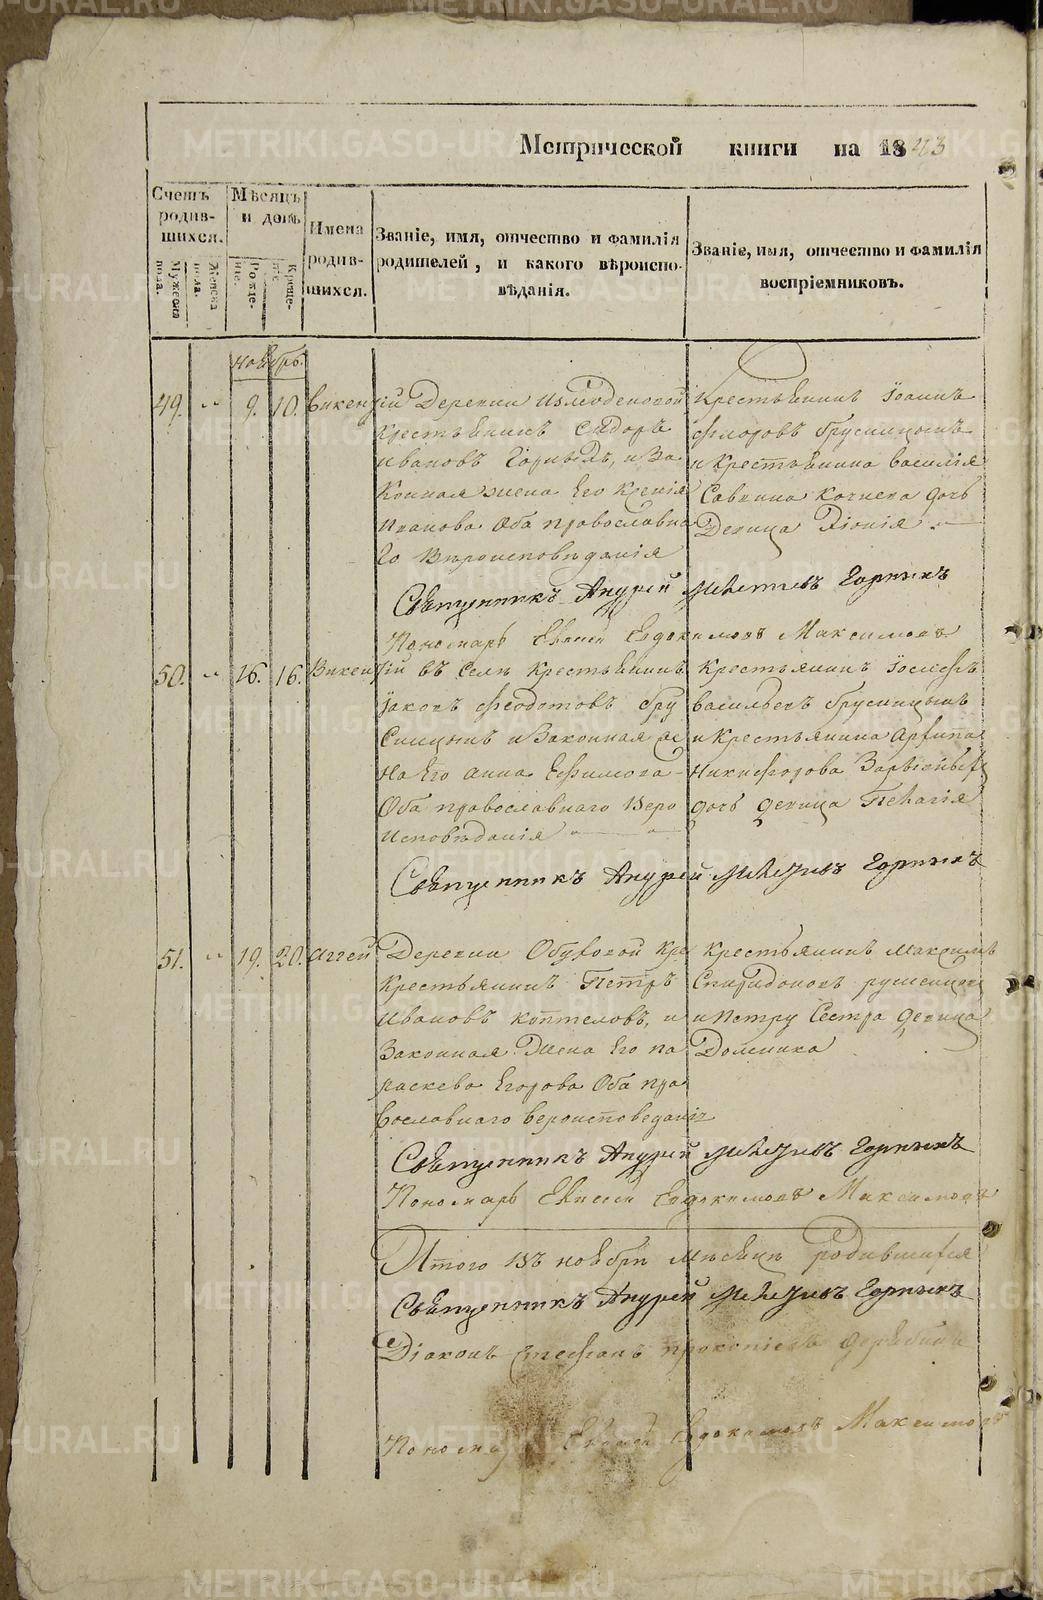 METRIKI.GASO-URAL.RU
Метрической книги на 1843
Счетъ родив-шихся.
Мужеска пола.
Женска пола.
Мѣсяцъ и день
Рожде-ніе.
Креще-ніе.
Имена родив-шихся.
Званіе, имя, отчество и фамилія родителей, и какого вѣроиспо-вѣданія.
Званіе, имя, отчество и фамилія воспріемниковъ.
ноябрь.
49. 9. 10. Викентій
Деревни
Крестьянинъ Сидоръ
Ивановъ и За
конная жена Его Ксенія
Иванова Оба православна
го Вѣроисповѣданія
Крестьянинъ Іоаннъ
Брусницынъ
и Крестьянина Василія
Саввина Кочнева дочь
Девица
Священникъ Андрей Горныхъ
Пономарь Евдокимовъ Максимовъ
50. 16. 16. Викентій
въ Селѣ Крестьянинъ
Іаковъ Феодотовъ Бру
сницынъ и Законная же
на Его Анна Ефимова
Оба православнаго Веро
исповѣданія
Крестьянинъ Іосифъ
Васильевъ Брусницынъ
и Крестьянина
Никифорова
дочь девица Пелагія
Священникъ Андрей Горныхъ
51. 19. 20. Аггей
Деревни Обуховой Кре
Крестьянинъ Петръ
Ивановъ Коптеловъ, и
Законная Жена Его Па
раскева Егорова Оба пра
вославнаго вероисповеданія
Крестьянинъ Максимъ
Спиридоновъ
и Петру Сестра девица
Домника
Священникъ Андрей Горныхъ
Пономарь Евдокимовъ Максимовъ
Итого въ ноябрѣ мѣсяцѣ родившихся
Священникъ Андрей Горныхъ
Діаконъ Стефанъ Прокопіевъ
Пономарь Евдокимовъ Максимовъ